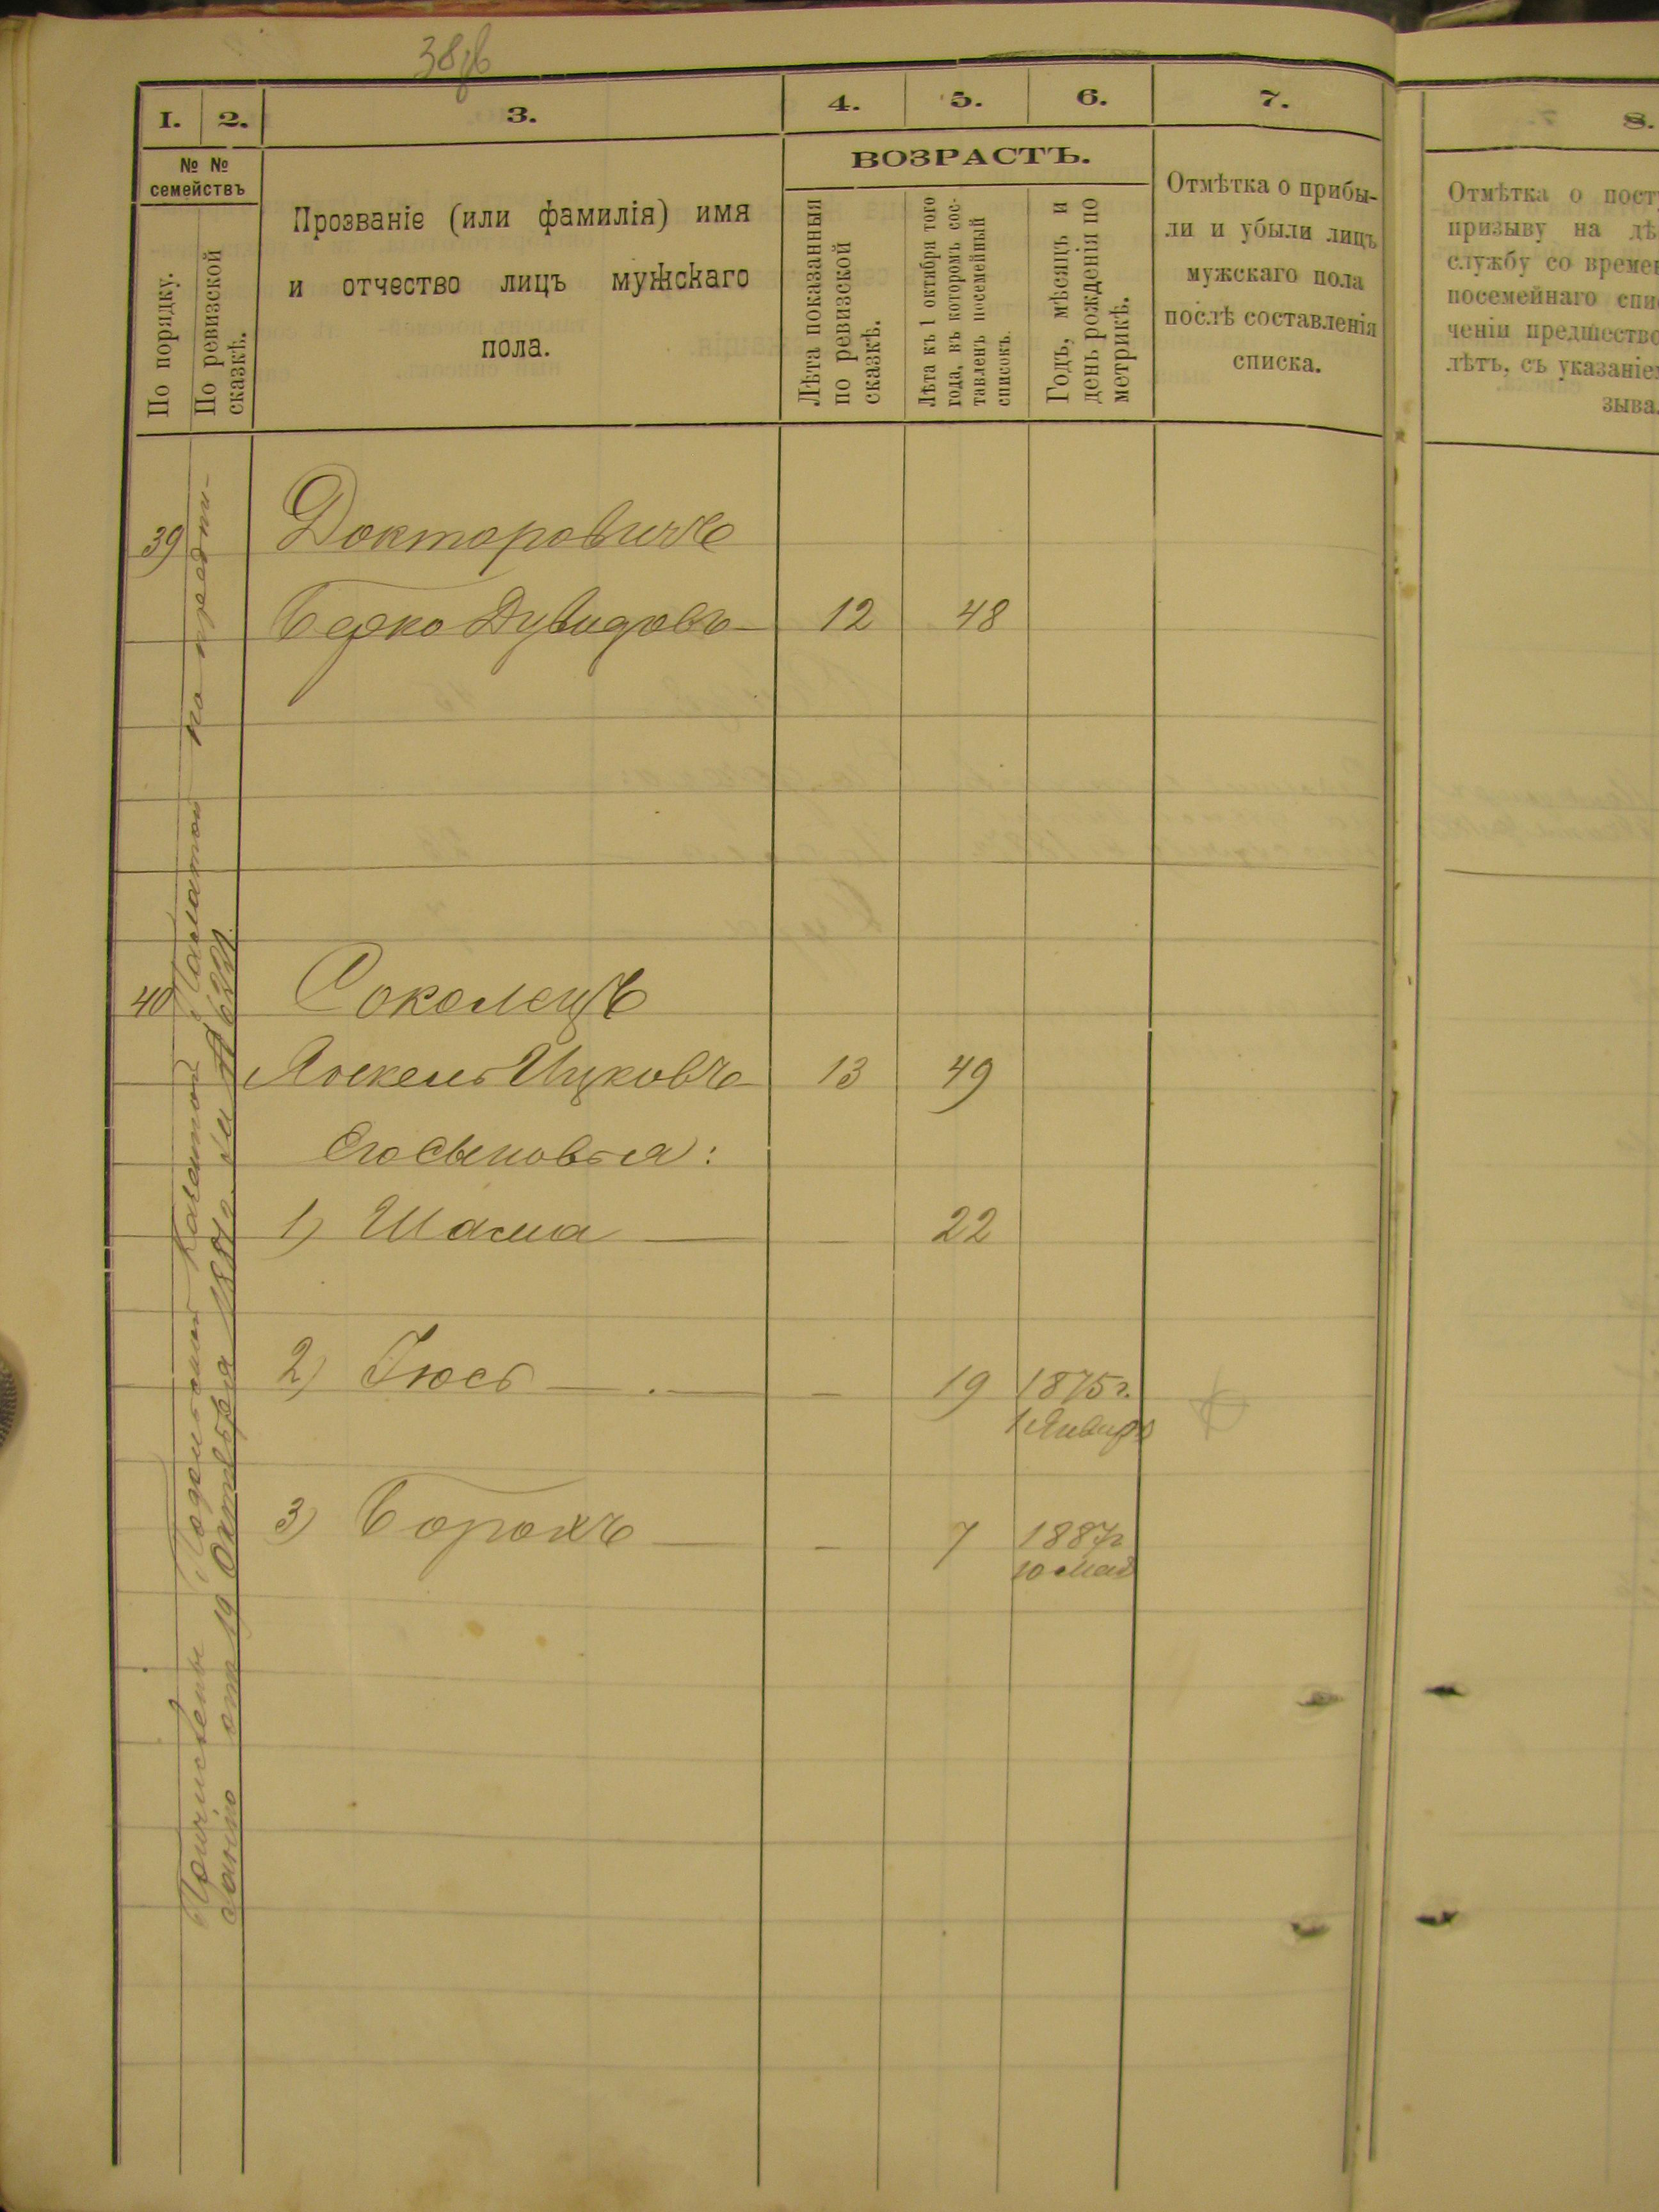 38
1. 2. 3. 4. 5. 6. 7. 8.
№ № семействъ
По порядку.
По ревизской сказкѣ.
Прозваніе (или фамилія) имя
и отчество лицъ мужскаго
пола.
ВОЗРАСТЪ.
Лѣта показанныя
по ревизской
сказкѣ.
Лѣта къ 1 октября того
года, въ которомъ сос-
тавленъ посемейный
списокъ.
Годъ, мѣсяцъ и
день рожденія по
метрикѣ.
Отмѣтка о прибы-
ли и убыли лицъ
мужскаго пола
послѣ составленія
списка.
Отмѣтка о посту
призыву на дѣ
службу со времен
посемейнаго спис
ченіи предшество
лѣтъ, съ указаніем
зыва.
39 Докторовичъ
Берко Дувидовъ 12 48
40 Соколецъ
Янкель Ицковъ 13 49
Его сыновья:
1) Шама — — 22
2) Іюсь — — 19 1875 г.
1 Января
3) Борохъ — — 7 1887 г
10 Мая
Причислены Подольской Казенной Палатой по предпи-
санію отъ 19 Октября 1887 г. за №